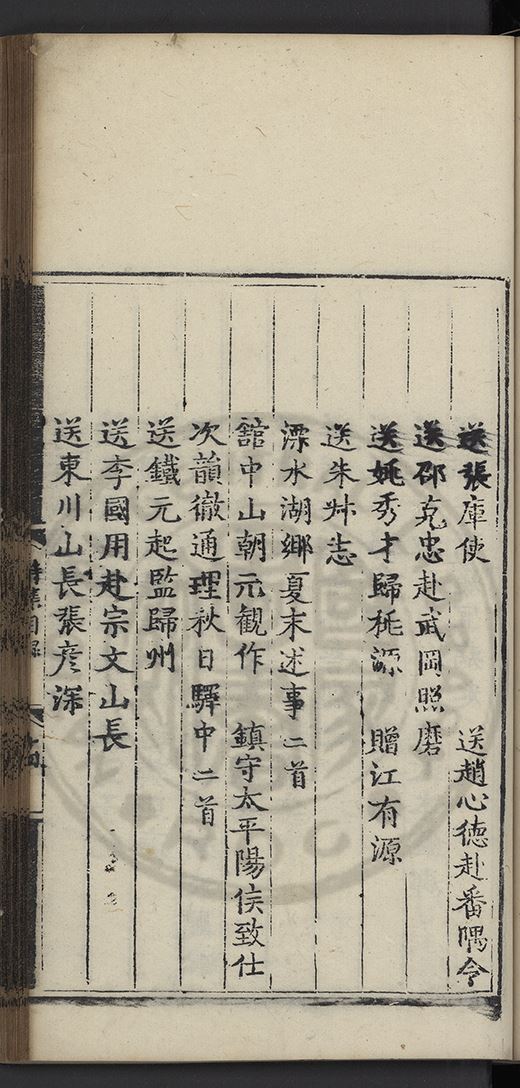 送張庫使　送趙心德赴番隅令
送邵克忠赴武岡照磨
送姚秀才歸桃源　贈江有源
送朱忭志
溧水湖鄉夏末述事二首
舘中山朝元觀作　鎮守太平陽侯致仕
次韻徹通理秋日驛中二首
送鐵元起監歸州
送李國用赴宗文山長
送東川山長張彥深
詩集目錄